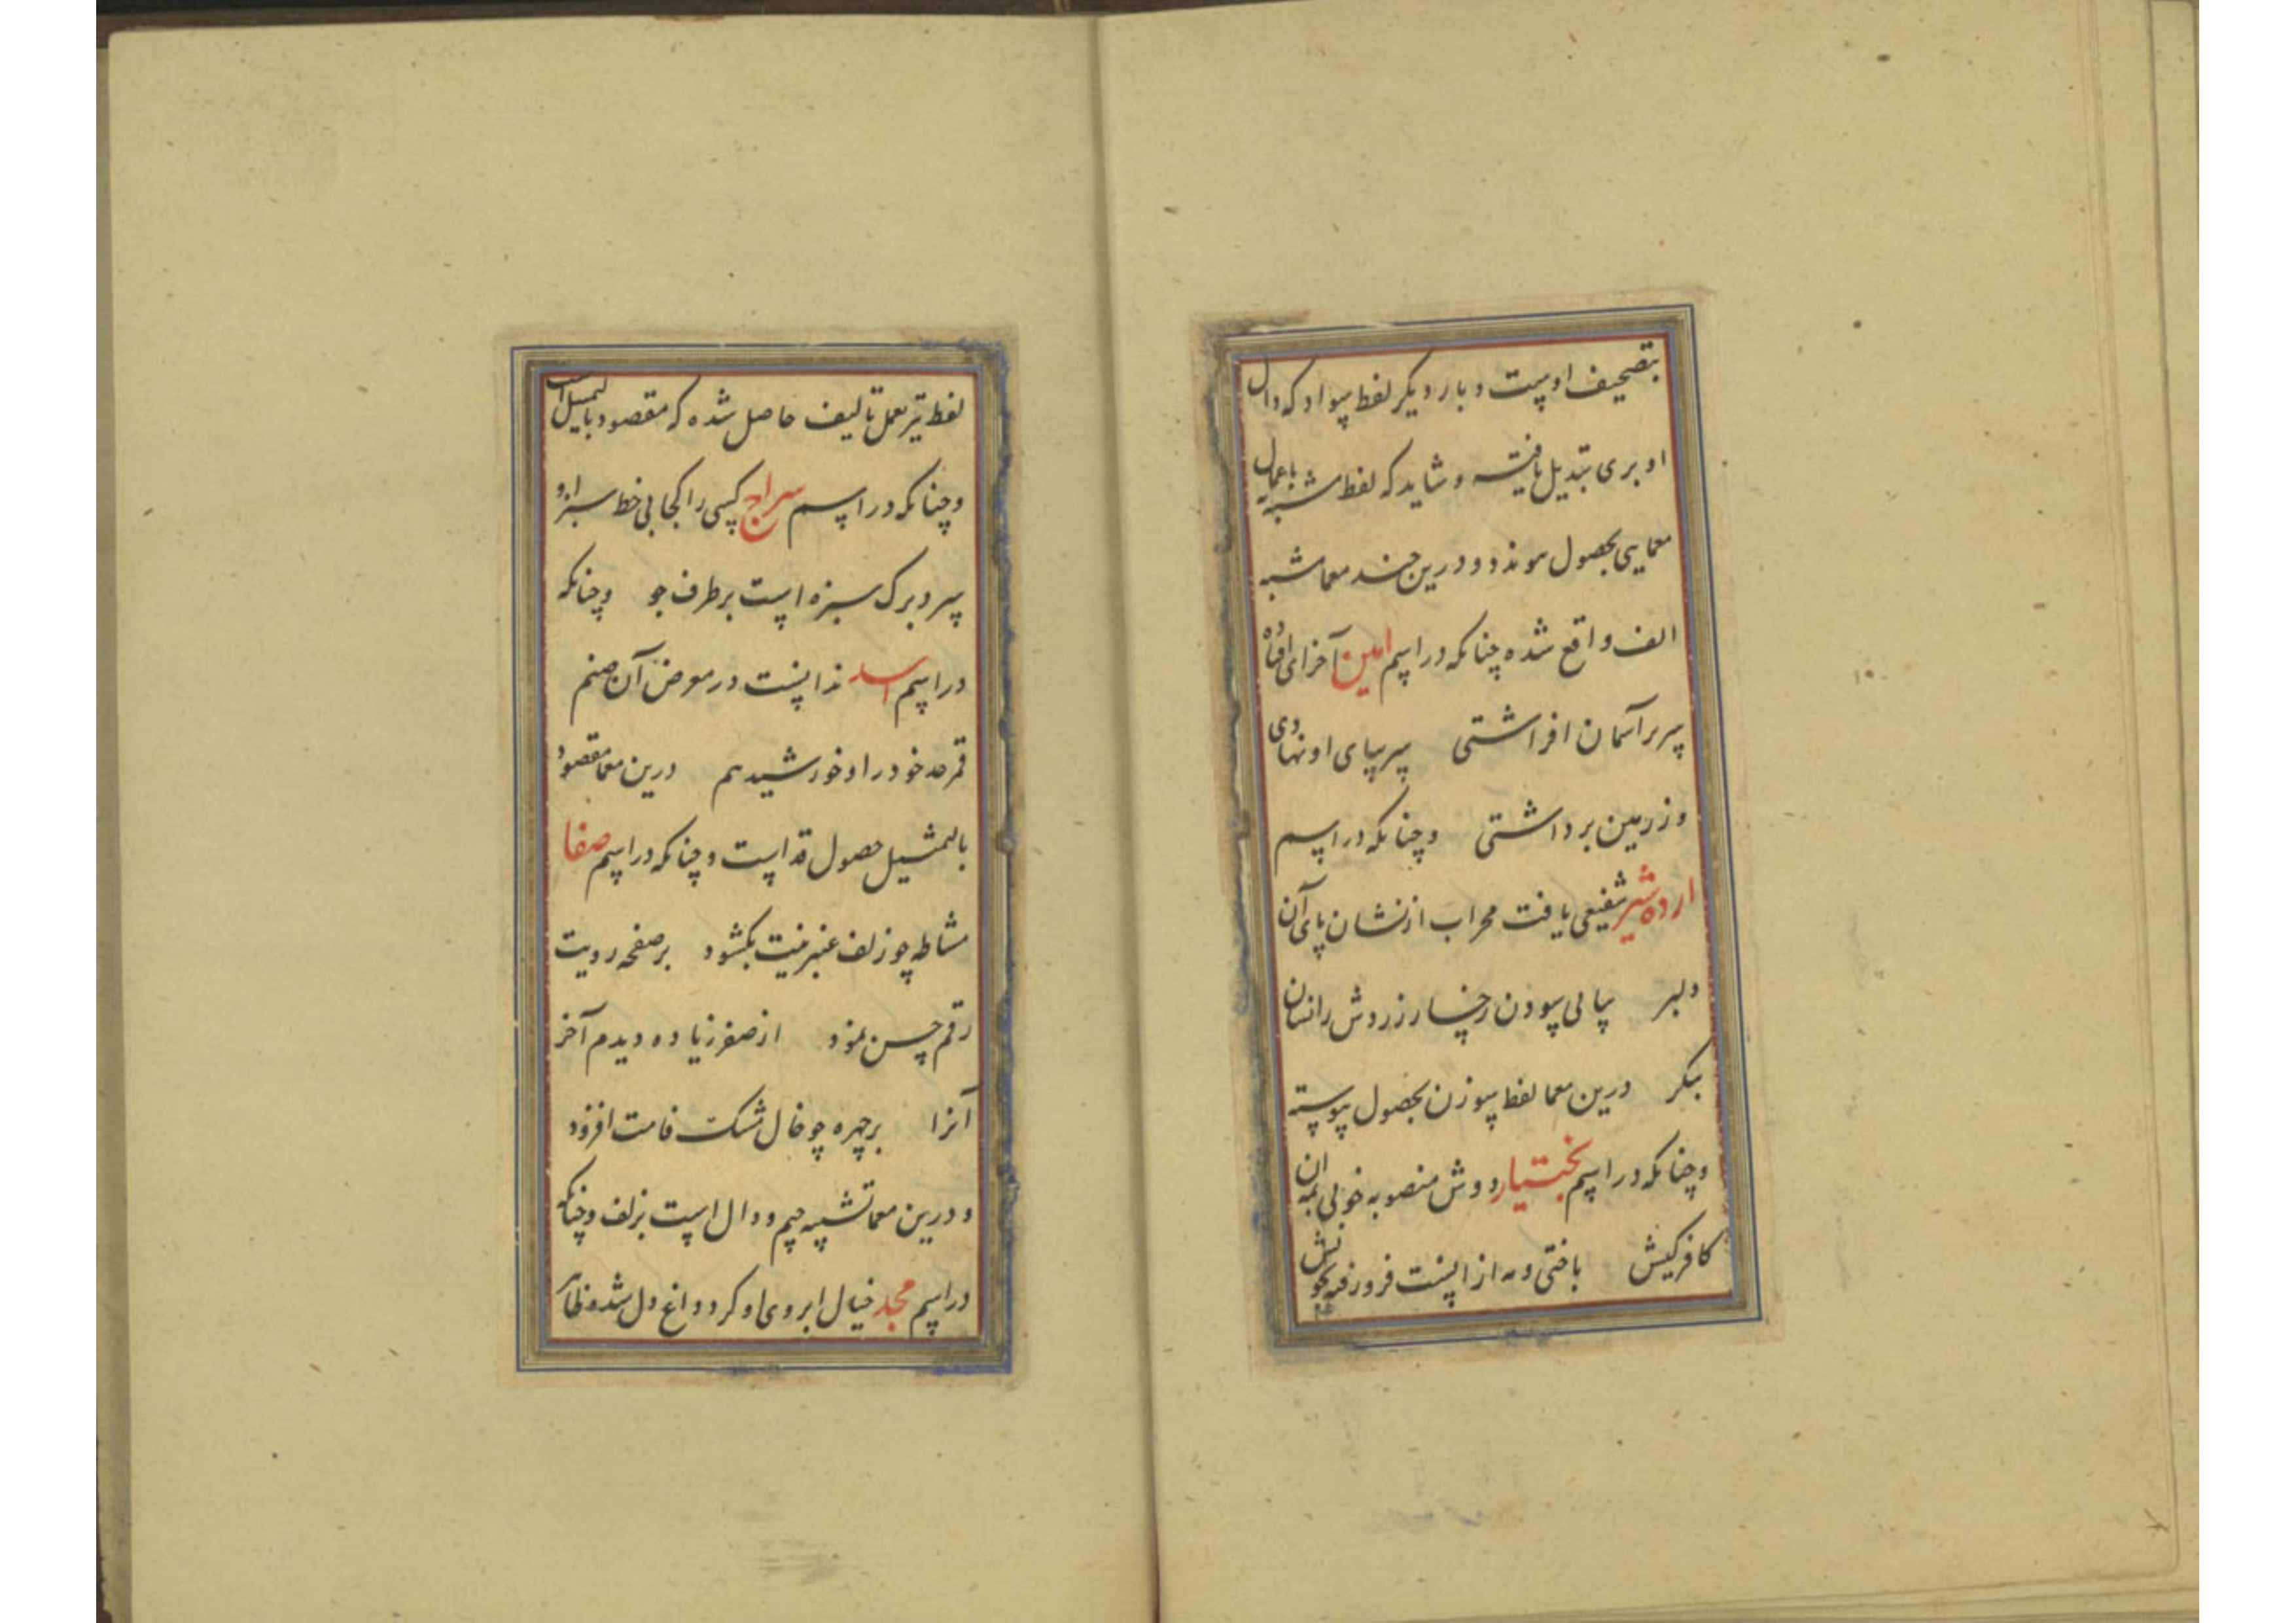 بتصحیف اوست و بار دیگر لفظ سواد که دال
او بری تبدیل یافته و شاید که لفظ مشبه باعمال
معمایی بحصول موندد و درین چند معما مشبه
الف واقع شده چنانکه در اسم امین آخر ای افتاده
سر بر آسمان افراشتی سر بپای او نهادی
وز زمین برداشتی و چنانکه در اسم
اردشیر شفیعی یافت محراب از نشان پای آن
دلبر بیا لی سودن رخسار زردش را نشان
بنگر درین معما لفظ سوزن بحصول پیوسته
و چنانکه در اسم بختیار دوش منصوبه خوبی بمه ان
کافر کیش باختی و مه ازانست فرو رفته بخو نش
لفظ تیر بعمل تالیف حاصل شده که مقصود بالتمثیل است
و چنانکه در اسم سراج کسی را کجا بی خط سبز او
سر و برک سبزه است بر طرف جو و چنانکه
در اسم اسد ندانست در معرض آن صنم
قمر حد خود را و خورشید هم درین معما مقصود
بالتمثیل حصول قد است و چنانکه در اسم صفا
مشاطه چو زلف عنبرینت بکشود بر صفحه رویت
رقم حسن نمود از صفر زیاده دیدم آخر
آنرا بر چهره چو خال مشکت قامت افزود
و درین معما تشبیه جیم و دال است بزلف و چنانکه
در اسم مجد خیال ابروی او کرد و داغ دل شد ظاهر